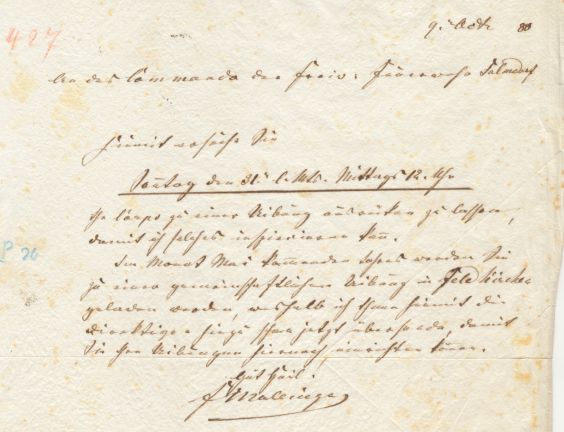 427
9. Octr 80
An das Commando der Freiw: Feuerwehr
Hiemit ersuche Sie
Sonntag den 31t l. Mts. Mittags 12. Uhr
Ihr Corps zu einer Uibung ausrücken zu lassen,
damit ich solches inspicieren kann.
Im Monat Mai kommenden Jahres werden Sie
zu einer gemeinschaftlichen Uibung in Feldkirchen
geladen werden, weshalb ich Ihnen hiemit die
hiezu schon jetzt übersende, damit
Sie Ihre Uibungen hiernach einrichten können.
Gut Heil!